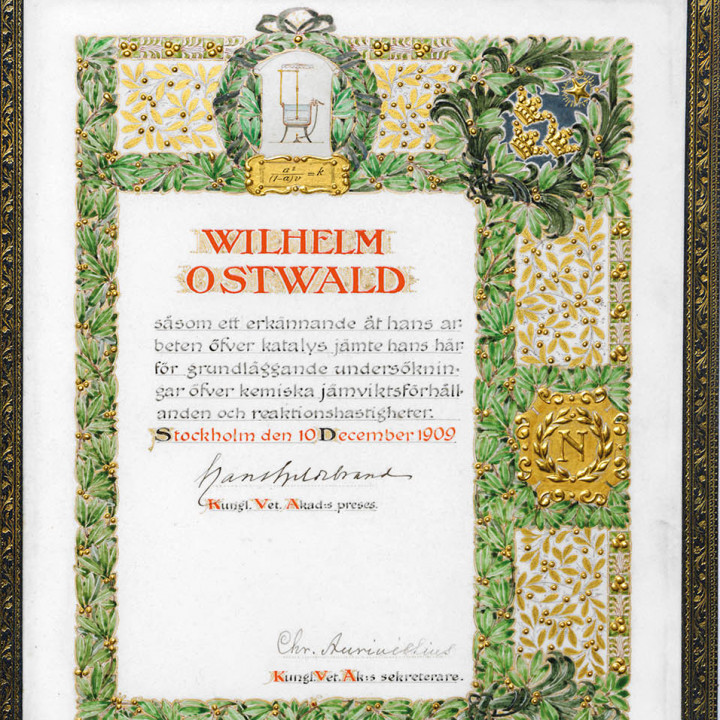 a²
(1-a)v =k
WILHELM
OSTWALD
såsom ett erkännande åt hans ar:
beten öfver katalys jämte hans här:
för grundläggande undersöknin:
gar öfver kemiska jämviktsförhåll:
anden och reaktionshastigheter.
Stockholm den 10 December 1909
N
Hans Hildebrand
Kungl. Vet. Akad:s preses.
Chr. Aurivillius
Kungl. Vet. Ak:s sekreterare.